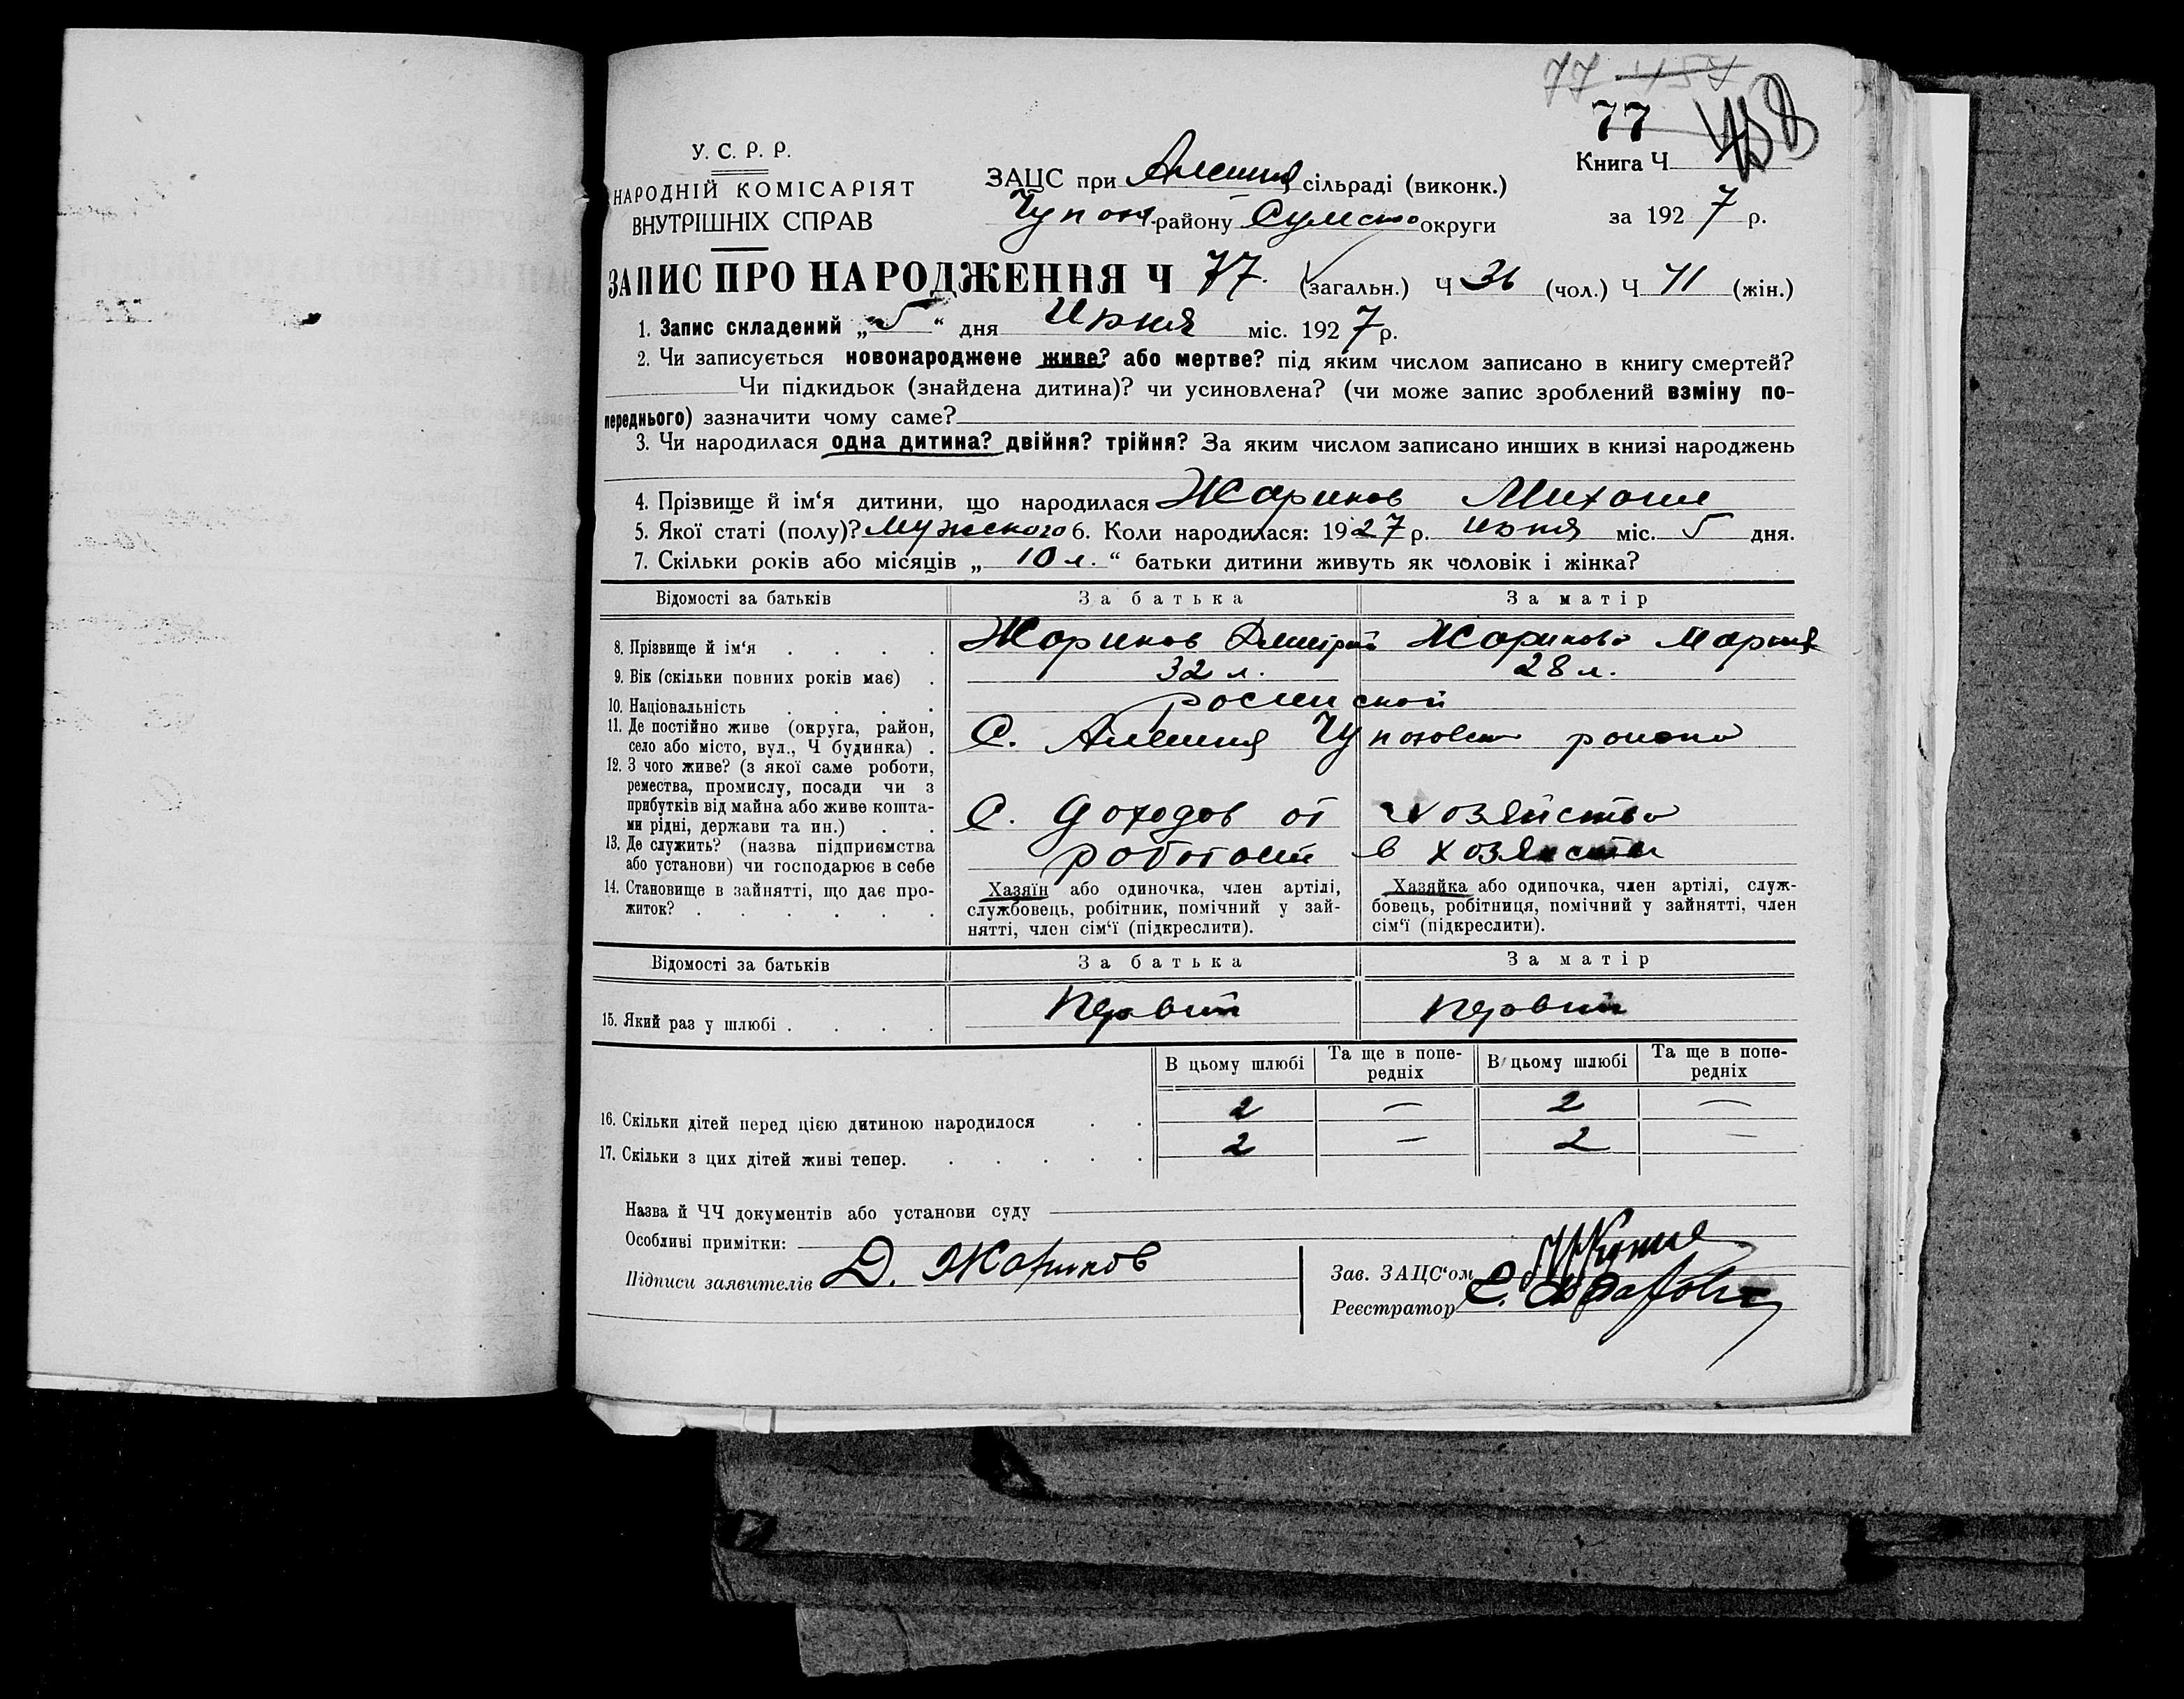 77 457
77 458
У. С. Р. Р.
НАРОДНІЙ КОМІСАРІЯТ
ВНУТРІШНІХ СПРАВ
Книга Ч
ЗАЦС при Алешня сільраді (виконк.)
Чупах. району Сумско округи
за 1927 р.
ЗАПИС ПРО НАРОДЖЕННЯ Ч 77. (загальн.) Ч 36 (чол.) Ч 41 (жін.)
1. Запис складений „5“ дня Июня міс. 1927 р.
2. Чи записується новонароджене живе? або мертве? під яким числом записано в книгу смертей?
Чи підкидьок (знайдена дитина)? чи усиновлена? (чи може запис зроблений взміну по-
переднього) зазначити чому саме?
3. Чи народилася одна дитина? двійня? трійня? За яким числом записано инших в книзі народжень
4. Прізвище й ім‘я дитини, що народилася Жариков Михаил
5. Якої статі (полу)? Мужского 6. Коли народилася: 1927 р. июня міс. 5 дня.
7. Скільки років або місяців „10 л.“ батьки дитини живуть як чоловік і жінка?
Відомості за батьків За батька За матір
8. Прізвище й ім‘я Жариков Дмитрий Жарикова Мария
9. Вік (скільки повних років має) 32 л. 28 л.
10. Національність российской
11. Де постійно живе (округа, район,
село або місто, вул., Ч будинка) С. Алешня Чупаховск района
12. З чого живе? (з якої саме роботи,
ремества, промислу, посади чи з
прибутків від майна або живе кошта-
ми рідні, держави та ин.) С. доходов от хозяйства
13. Де служить? (назва підприємства
або установи) чи господарює в себе работают в хозяйстве
14. Становище в зайнятті, що дає про-
житок?
Хазяїн або одиночка, член артілі,
службовець, робітник, помічний у зай-
нятті, член сім‘ї (підкреслити).
Хазяйка або одипочка, член артілі, служ-
бовець, робітниця, помічний у зайнятті, член
сім‘ї (підкреслити).
Відомості за батьків За батька За матір
15. Який раз у шлюбі Первий Первий
В цьому шлюбі Та ще в попе-
редніх В цьому шлюбі Та ще в попе-
редніх
16. Скільки дітей перед цією дитиною народилося 2 — 2 —
17. Скільки з цих дітей живі тепер. 2 — 2 —
Назва й ЧЧ документів або установи суду
Особливі примітки:
Підписи заявителів Д. Жариков
Зав. ЗАЦС‘ом
Реєстратор